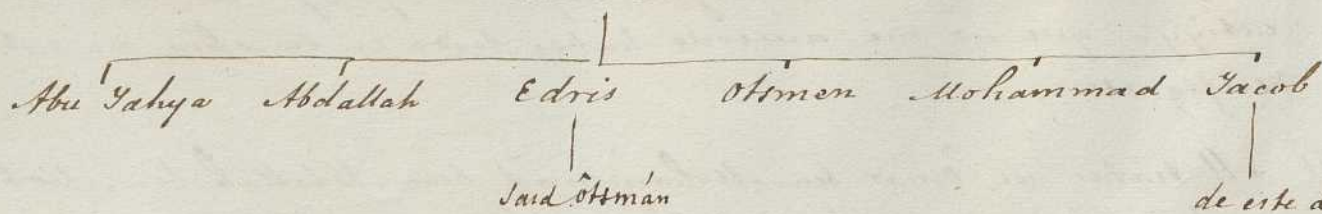 Abu Yahya Abdallah Edris Otsmen Mohammad Jacob
Said Ôtsmán
de este